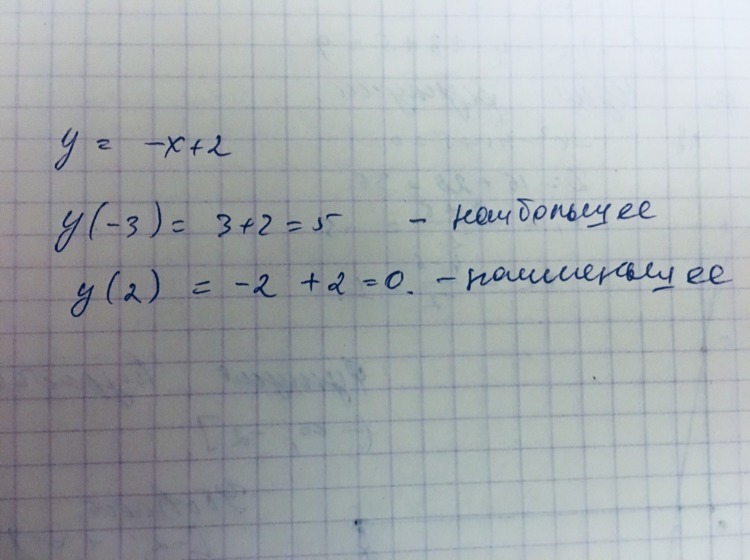 y = -x+2
y(-3) = 3+2=5 - наибольшее
y(2) = -2 +2=0. - наименьшее